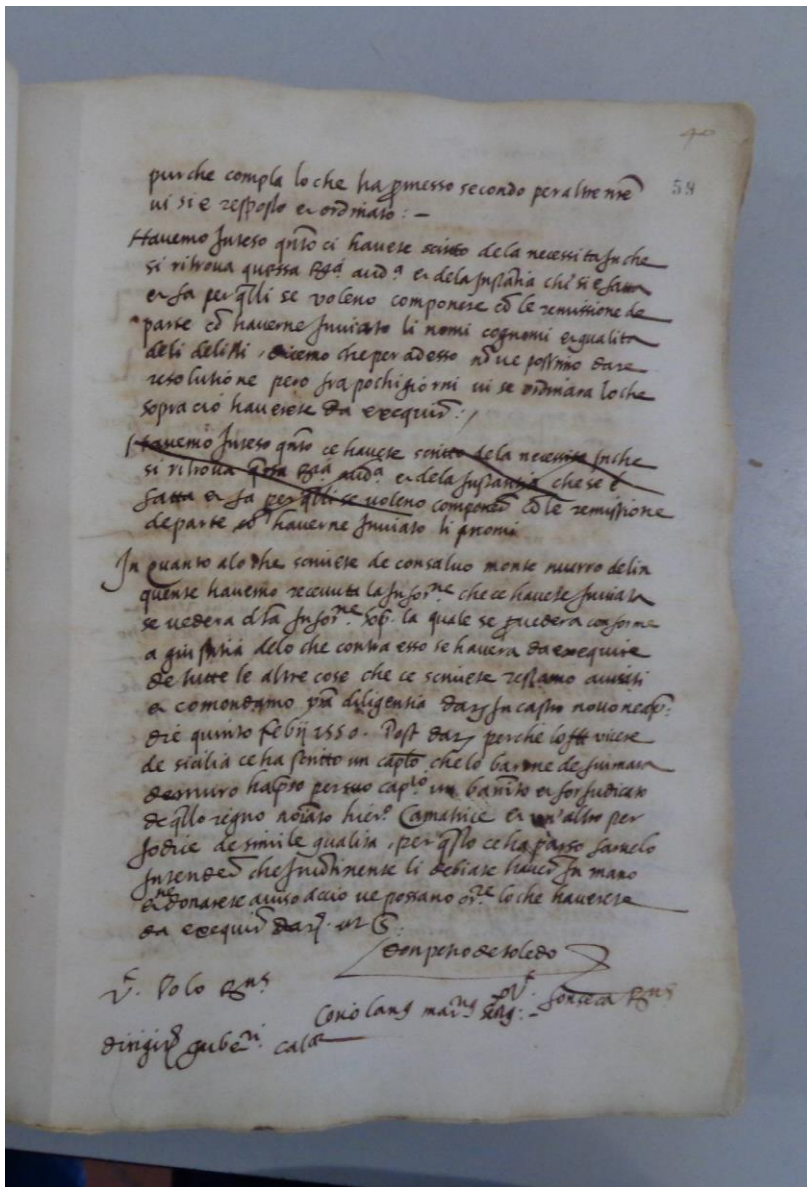 58
purche compla lo che ha ꝓmesso secondo per altre nr̃e
vi si e resposto et ordinato : –
Havemo Inteso qñto ci havete scritto de la necessita In che
si ritrova questa Rᵃ audᵃ et de la Instantia chi si e fatta
et fa per q̃lli se voleno componere cõ le remissione de
parte cõ haverne Inviato li nomi cognomi et qualita
deli delitti, dicemo che per adesso nõ ve possimo dare
resolutione pero fra pochi giorni vi se ordinara lo che
sopra ciò haverete da exequir̃ :,
Havemo Inteso qñto ce havete scritto de la necessita In che
si ritrova q̃sta Rᵃ audᵃ et de la Instantia che se è
fatta et fa per q̃lli se voleno componer̃ cõ le remissione
de parte cõ haverne Inviato li nomi
In quanto a lo che scrivete de consalvo monte nuerro delin
quente havemo receputa la Inforⁿᵉ che ce havete Inviata
se vedera d̃ta Inforⁿᵉ sop̃ la quale se ꝓvedera conforme
a giustitia de lo che contra esso se havera da exequire
de tutte le altre cose che ce scrivete restamo avisati
et comendamo vr̃a diligentia dat̃ In castro novo neap̃:
die quinto feb̃ij 1550. Post dat̃ perche lo Ill vicere
de sicilia ce ha scritto un cap̃to che lo barone de fiumara
de muro ha p̃so per suo cap̃ⁿᵒ un bannito et forjudicato
de q̃llo regno noĩato hier° Camatrice et un'altro per
Jodice de simile qualita, per q̃sto ce ha parso farvelo
Intender̃ che Incõtinente li debiate haver̃ In mano
et ne donarete aviso acciò ve possano ordⁿᵉ lo che haverete
da exequir̃ dat̃ ut s̃:
don petro de toledo
V̓. Polo Rⁿˢ
V̓. fonseca Rⁿˢ
Coriolanꝰ marⁿꝰ secrꝰ : –
dirigit̃ guber̃i calaᵉ